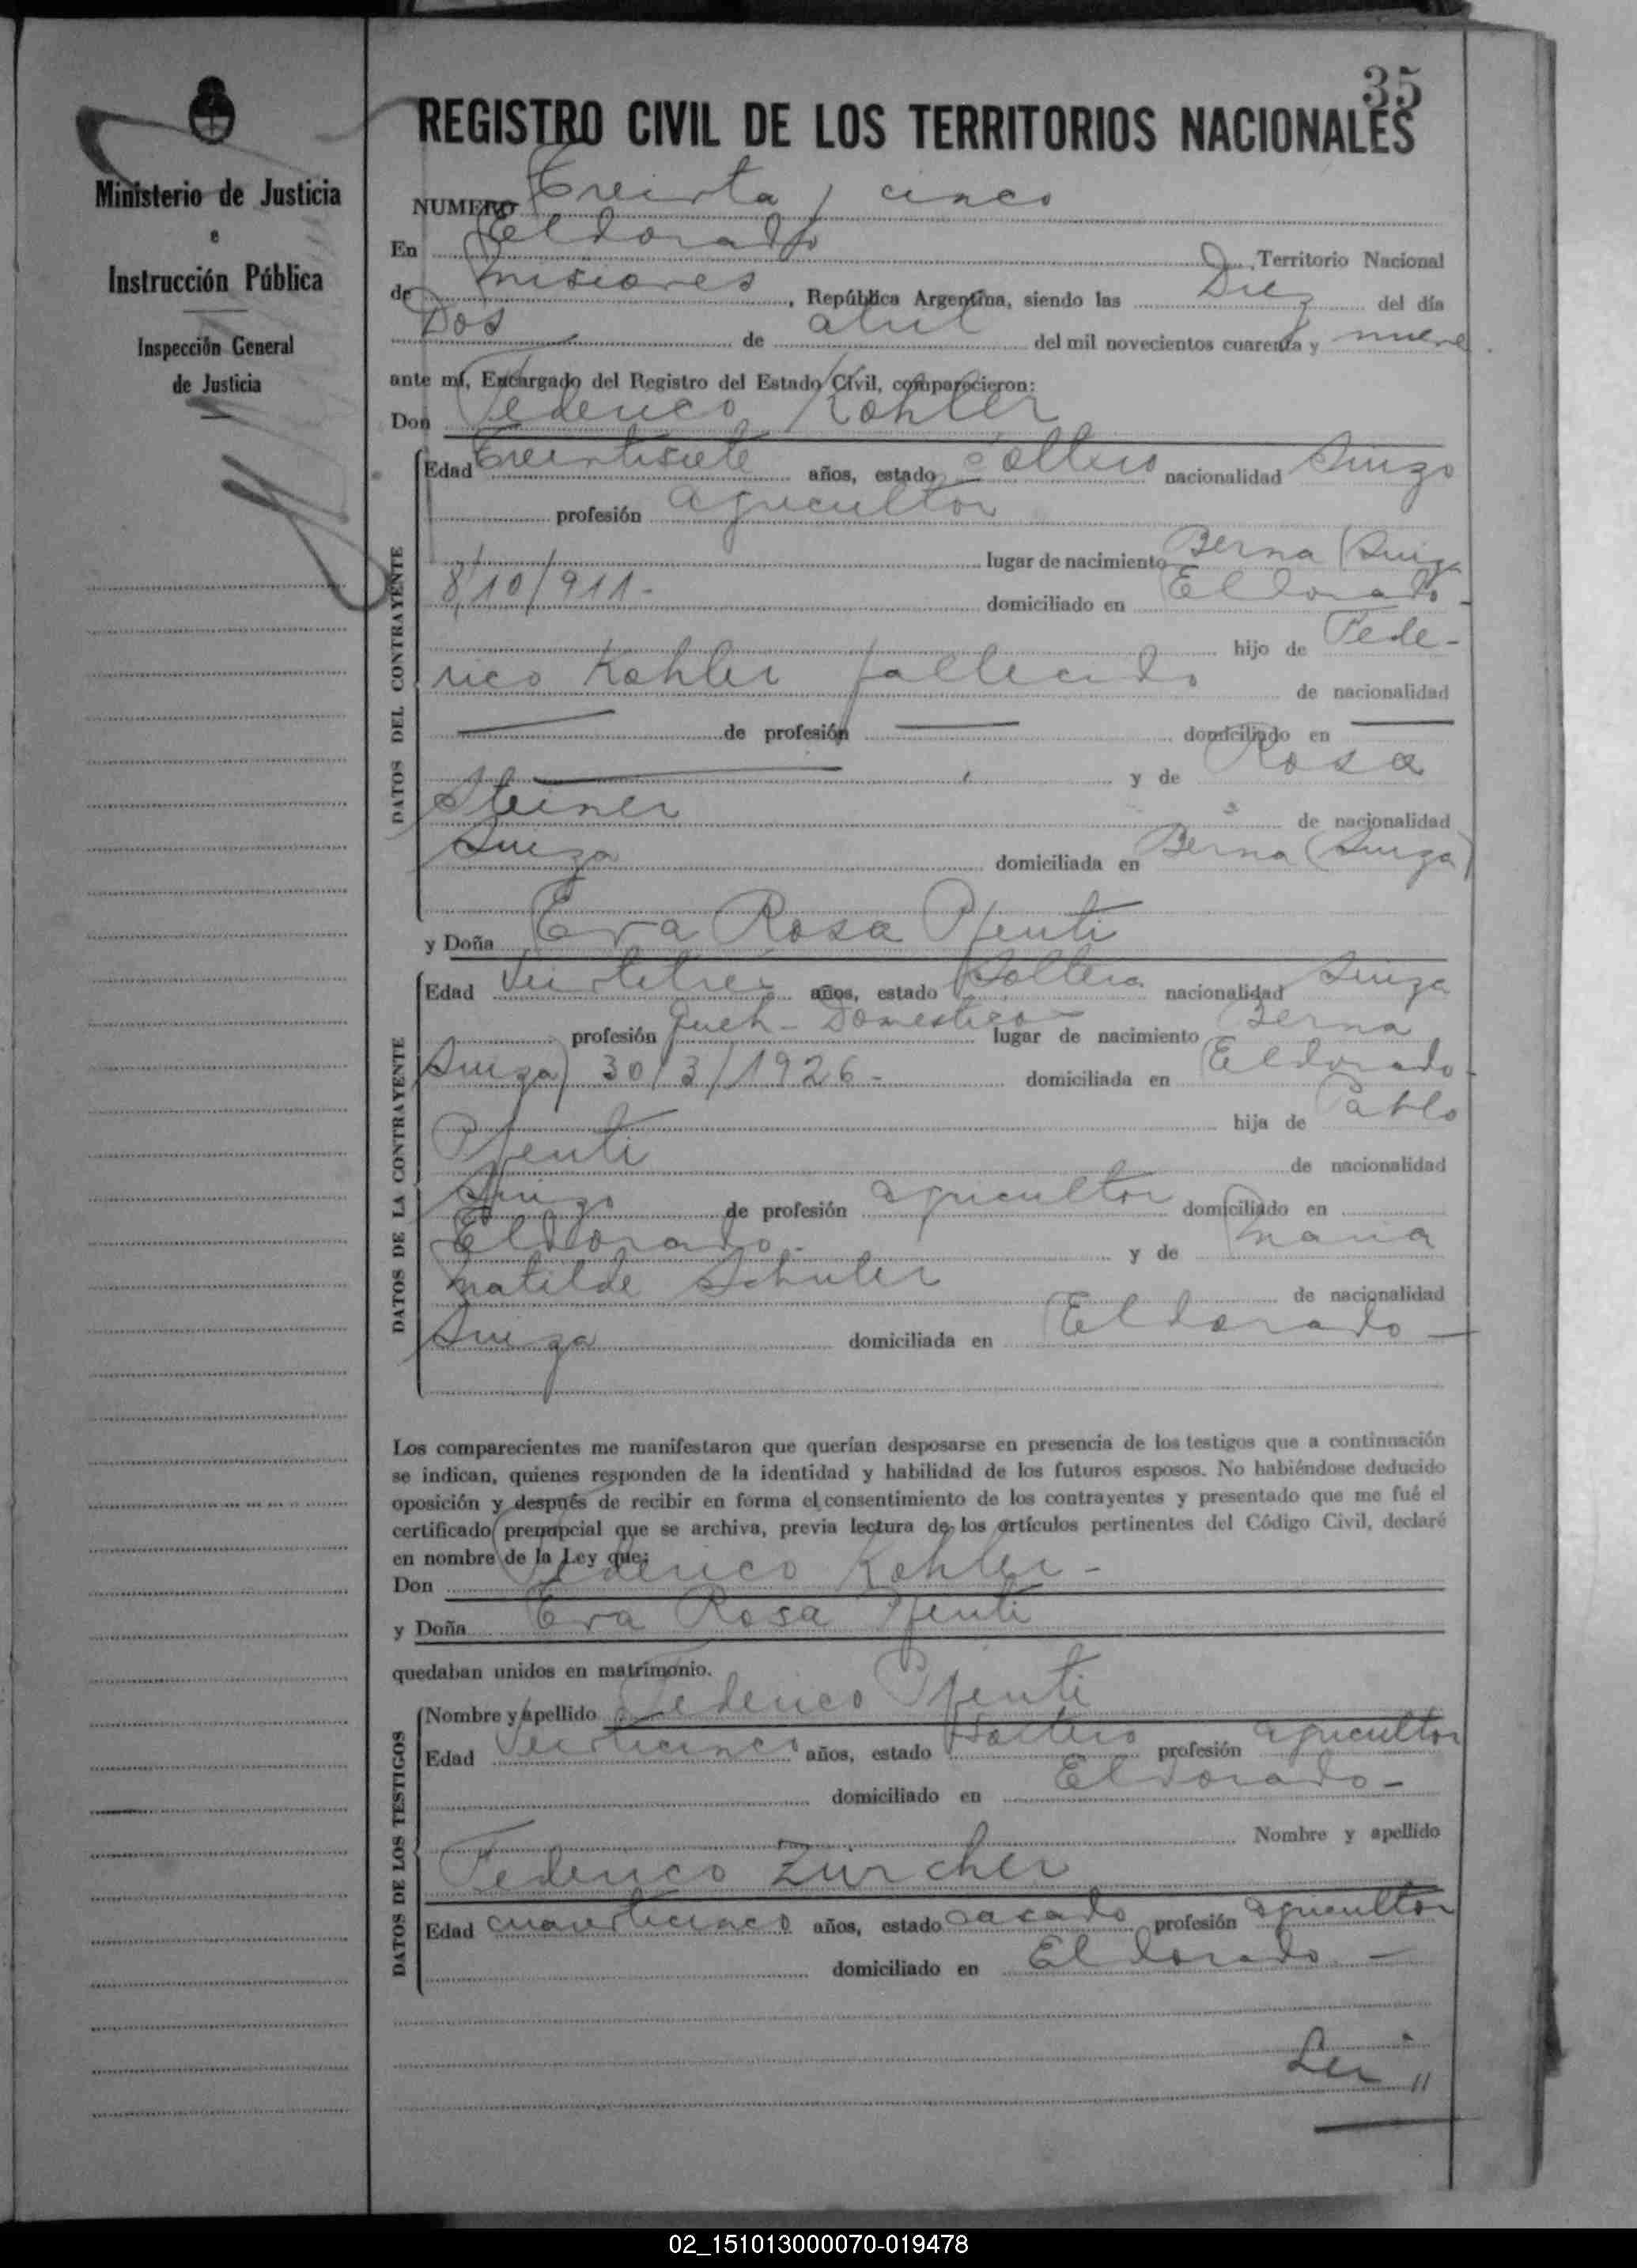 35
REGISTRO CIVIL DE LOS TERRITORIOS NACIONALES
Ministerio de Justicia
e
Instrucción Pública
Inspección General
de Justicia
NUMERO Treinta y cinco
En Eldorado Territorio Nacional
de Misiones, República Argentina, siendo las Diez del día
Dos de abril del mil novecientos cuarenta y nueve
ante mí, Encargado del Registro del Estado Civil, comparecieron:
Don Federico Kohler
DATOS DEL CONTRAYENTE
Edad treintisiete años, estado soltero nacionalidad Suizo
profesión agricultor
lugar de nacimiento Berna (Suiza
8/10/911- domiciliado en Eldorado-
hijo de Fede-
rico Kohler fallecido de nacionalidad
de profesión domiciliado en
y de Rosa
Steiner de nacionalidad
Suiza domiciliada en Berna (Suiza)
y Doña Eva Rosa Pfenti
DATOS DE LA CONTRAYENTE
Edad Veintitres años, estado Soltera nacionalidad Suiza
profesión Queh- Domestico lugar de nacimiento Berna
Suiza) 30/3/1926- domiciliada en Eldorado-
hija de Pablo
Pfenti de nacionalidad
Suizo de profesión agricultor domiciliado en
Eldorado- y de Maria
Matilde Schuler de nacionalidad
Suiza domiciliada en Eldorado-
Los comparecientes me manifestaron que querían desposarse en presencia de los testigos que a continuación
se indican, quienes responden de la identidad y habilidad de los futuros esposos. No habiéndose deducido
oposición y después de recibir en forma el consentimiento de los contrayentes y presentado que me fué el
certificado prenupcial que se archiva, previa lectura de los artículos pertinentes del Código Civil, declaré
en nombre de la Ley que:
Don Federico Kohler-
y Doña Eva Rosa Pfenti
quedaban unidos en matrimonio.
DATOS DE LOS TESTIGOS
Nombre y apellido Federico Pfenti
Edad Veinticinco años, estado Soltero profesión agricultor
domiciliado en Eldorado-
Nombre y apellido
Federico Zürcher
Edad cuarenticinco años, estado casado profesión agricultor
domiciliado en Eldorado-
02_151013000070-019478